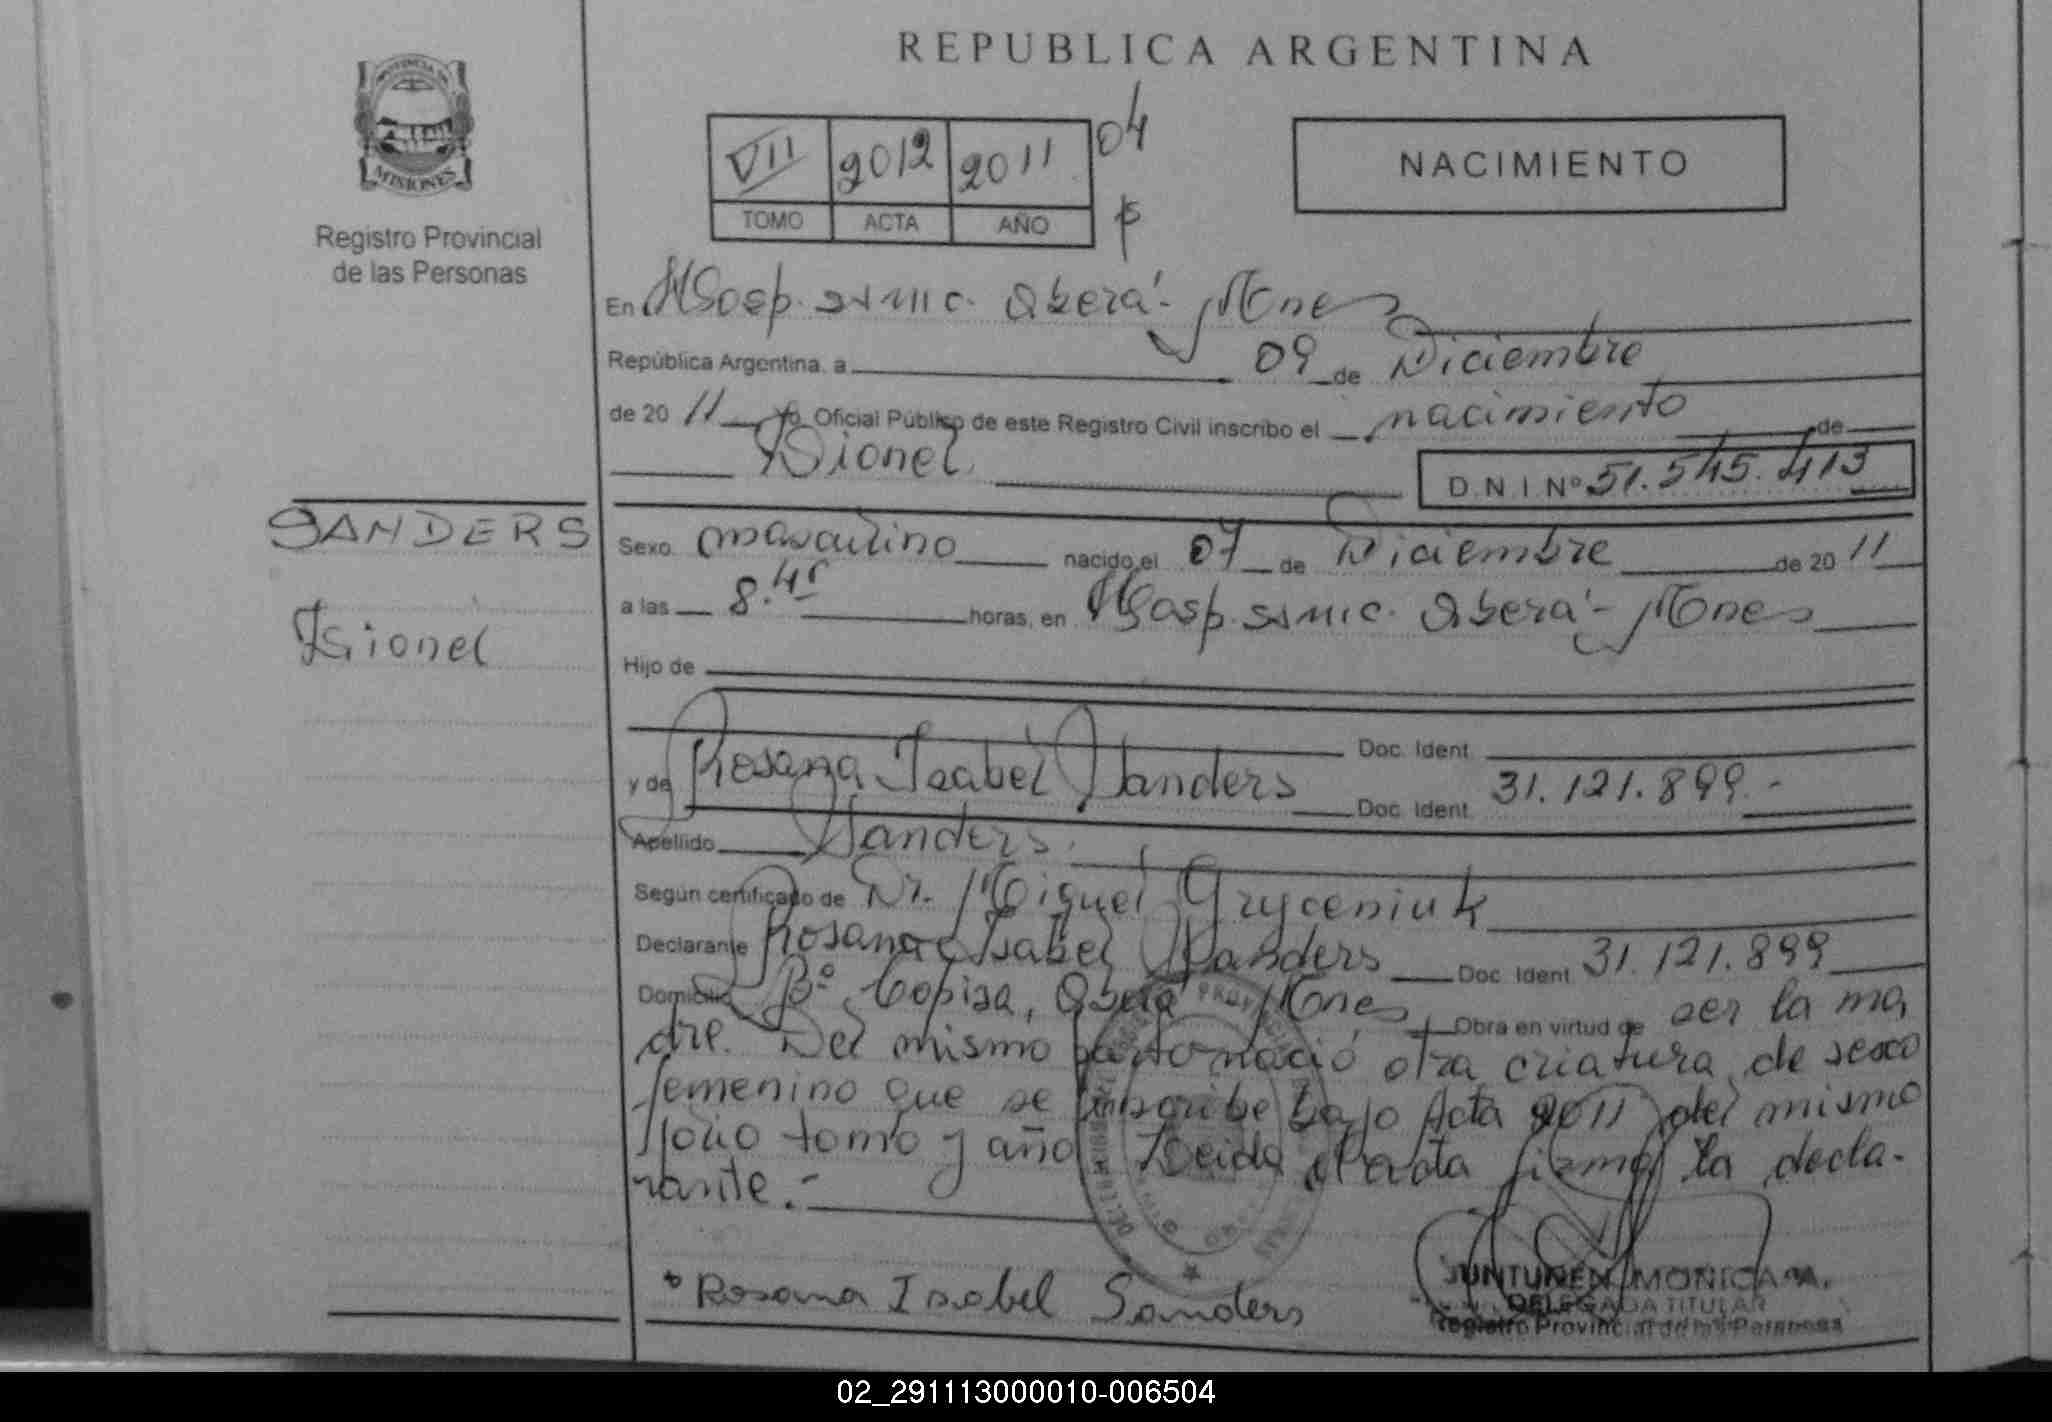 REPUBLICA ARGENTINA
PROVINCIA DE
MISIONES
Registro Provincial
de las Personas
VII 2012 2011 04
TOMO ACTA AÑO
NACIMIENTO
En Hosp. SAMIC. Oberá - Mnes
República Argentina, a 09 de Diciembre
de 20 11 yo Oficial Público de este Registro Civil inscribo el nacimiento de
Lionel D.N.I. Nº 51.545.413
SANDERS
Lionel
Sexo masculino nacido el 07 de Diciembre de 20 11
a las 8.45 horas, en Hosp. SAMIC. Oberá - Mnes
Hijo de
Doc. Ident.
y de Rosana Isabel Sanders Doc. Ident. 31.121.899.-
Apellido Sanders.
Según certificado de Dr. Miguel Gryceniuk
Declarante Rosana Isabel Sanders Doc. Ident. 31.121.899
Domicilio Bº Copisa, Oberá Mnes Obra en virtud de ser la ma
dre. Del mismo parto nació otra criatura de sexo
femenino que se inscribe bajo Acta 2011 del mismo
folio tomo y año Leida el acta firma la decla-
rante.-
Rosana Isabel Sanders
JUNTUNEN, MONICA M.
DELEGADA TITULAR
Registro Provincial de las Personas
02_291113000010-006504